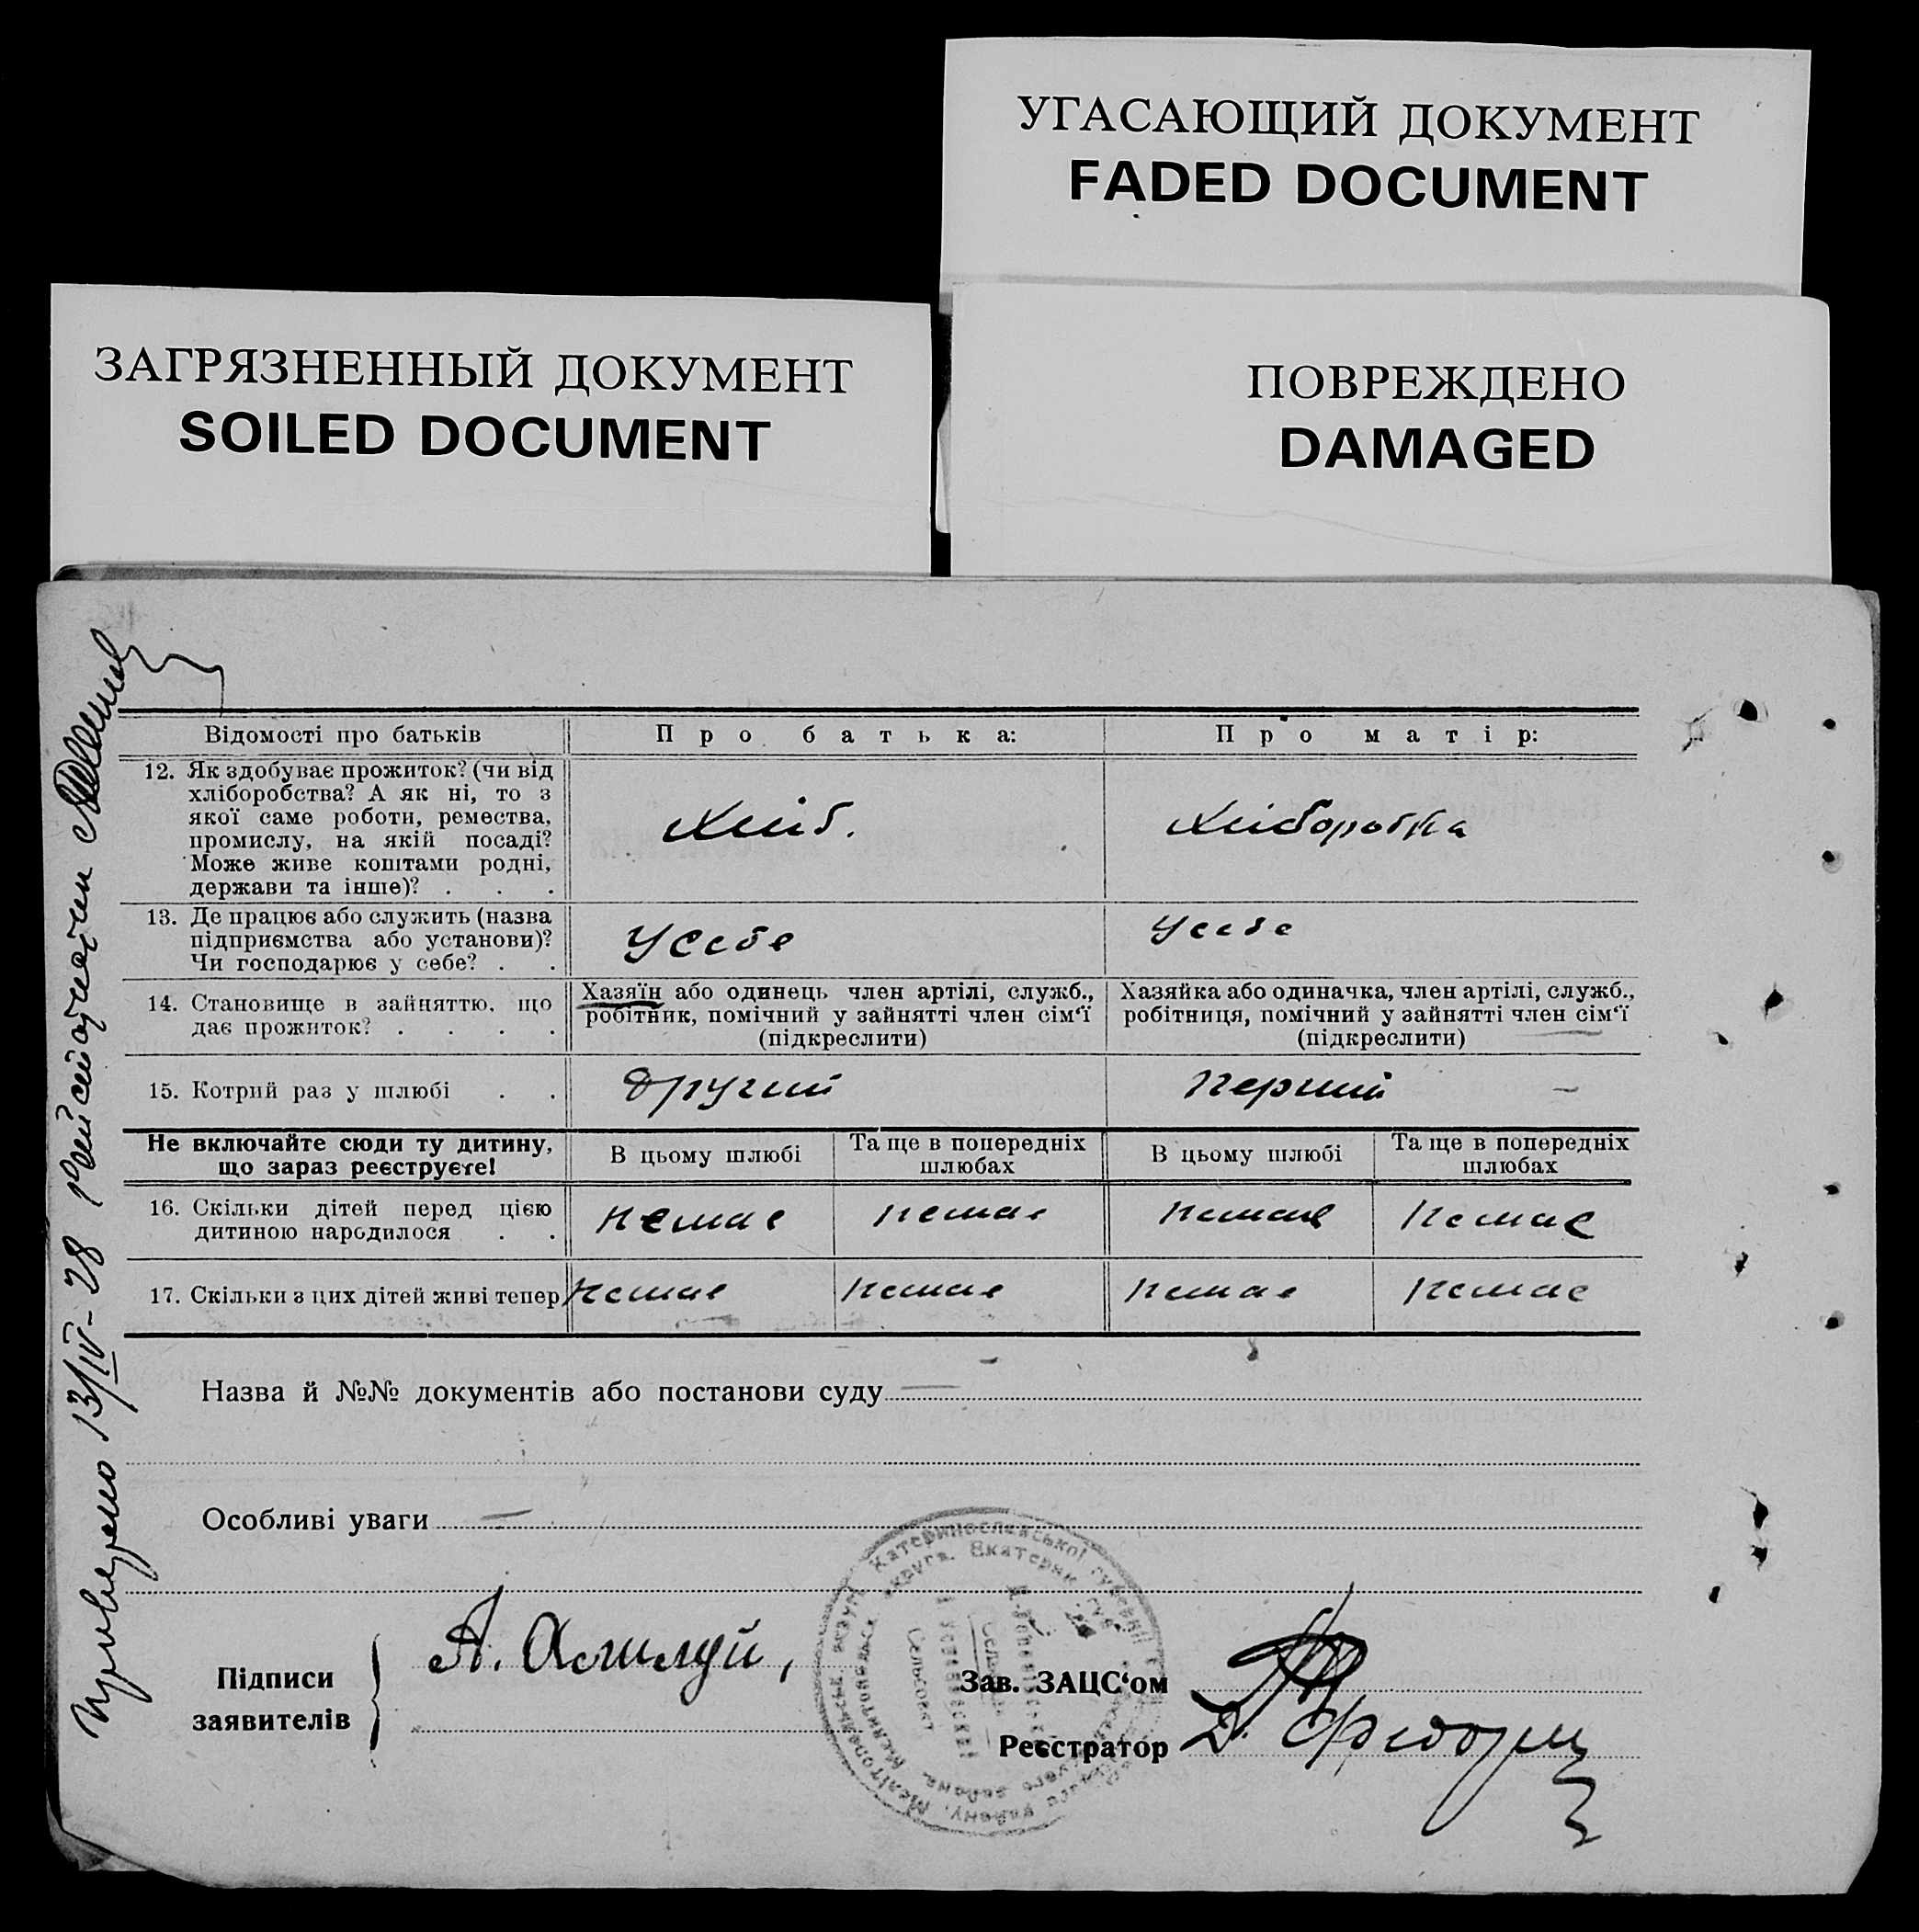 УГАСАЮЩИЙ ДОКУМЕНТ
FADED DOCUMENT
ЗАГРЯЗНЕННЫЙ ДОКУМЕНТ
SOILED DOCUMENT
ПОВРЕЖДЕНО
DAMAGED
Відомості про батьків
Про батька:
Про матір:
12. Як здобуває прожиток? (чи від
хліборобства? А як ні, то з
якої саме роботи, ремества,
промислу, на якій посаді?
Може живе коштами родні,
держави та інше)? . . .
Хліб.
Хліборобка
13. Де працює або служить (назва
підприємства або установи)?
Чи господарює у себе? . .
У себе
У себе
14. Становище в зайняттю, що
дає прожиток? . . . .
Хазяїн або одинець член артілі, служб.,
робітник, помічний у зайнятті член сім'ї
(підкреслити)
Хазяйка або одиначка, член артілі, служб.,
робітниця, помічний у зайнятті член сім'ї
(підкреслити)
15. Котрий раз у шлюбі . .
Другий
Перший
Не включайте сюди ту дитину,
що зараз реєструєте!
В цьому шлюбі
Та ще в попередніх
шлюбах
В цьому шлюбі
Та ще в попередніх
шлюбах
16. Скільки дітей перед цією
дитиною народилося . .
Немає
Немає
Немає
Немає
17. Скільки з цих дітей живі тепер
Немає
Немає
Немає
Немає
Назва й №№ документів або постанови суду
Особливі уваги
Підписи
заявителів
А.
Зав. ЗАЦС'ом
Реєстратор
Д.
13/IV-28